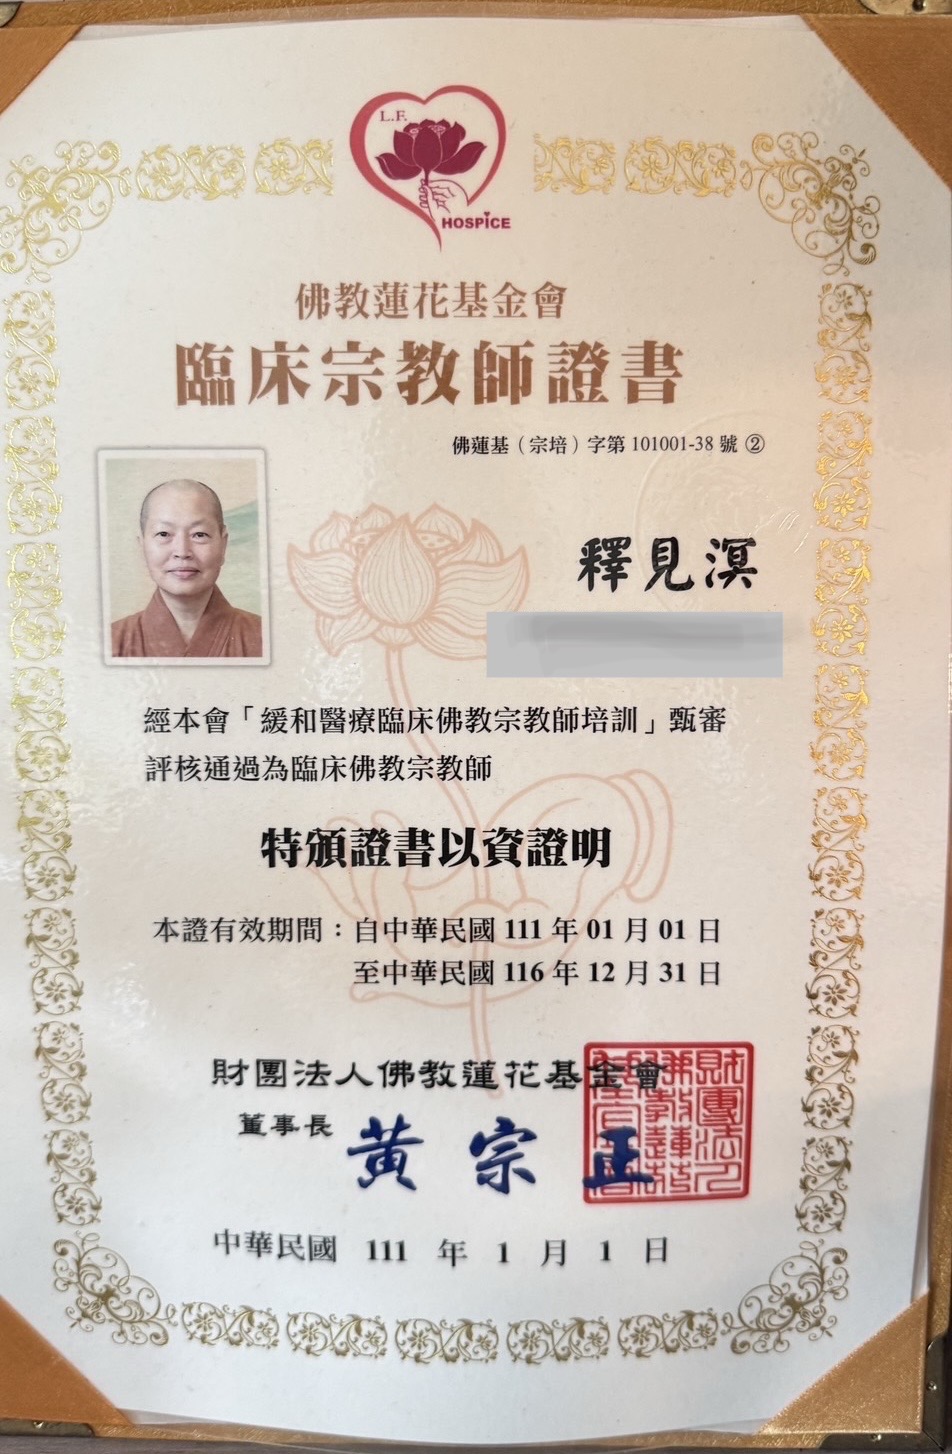 L.F.
HOSPICE
佛教蓮花基金會
臨床宗教師證書
佛蓮基（宗培）字第 101001-38 號 ②
釋見溟
經本會「緩和醫療臨床佛教宗教師培訓」甄審
評核通過為臨床佛教宗教師
特頒證書以資證明
本證有效期間：自中華民國 111 年 01 月 01 日
至中華民國 116 年 12 月 31 日
財團法人佛教蓮花基金會
董事長 黃宗正
中華民國 111 年 1 月 1 日